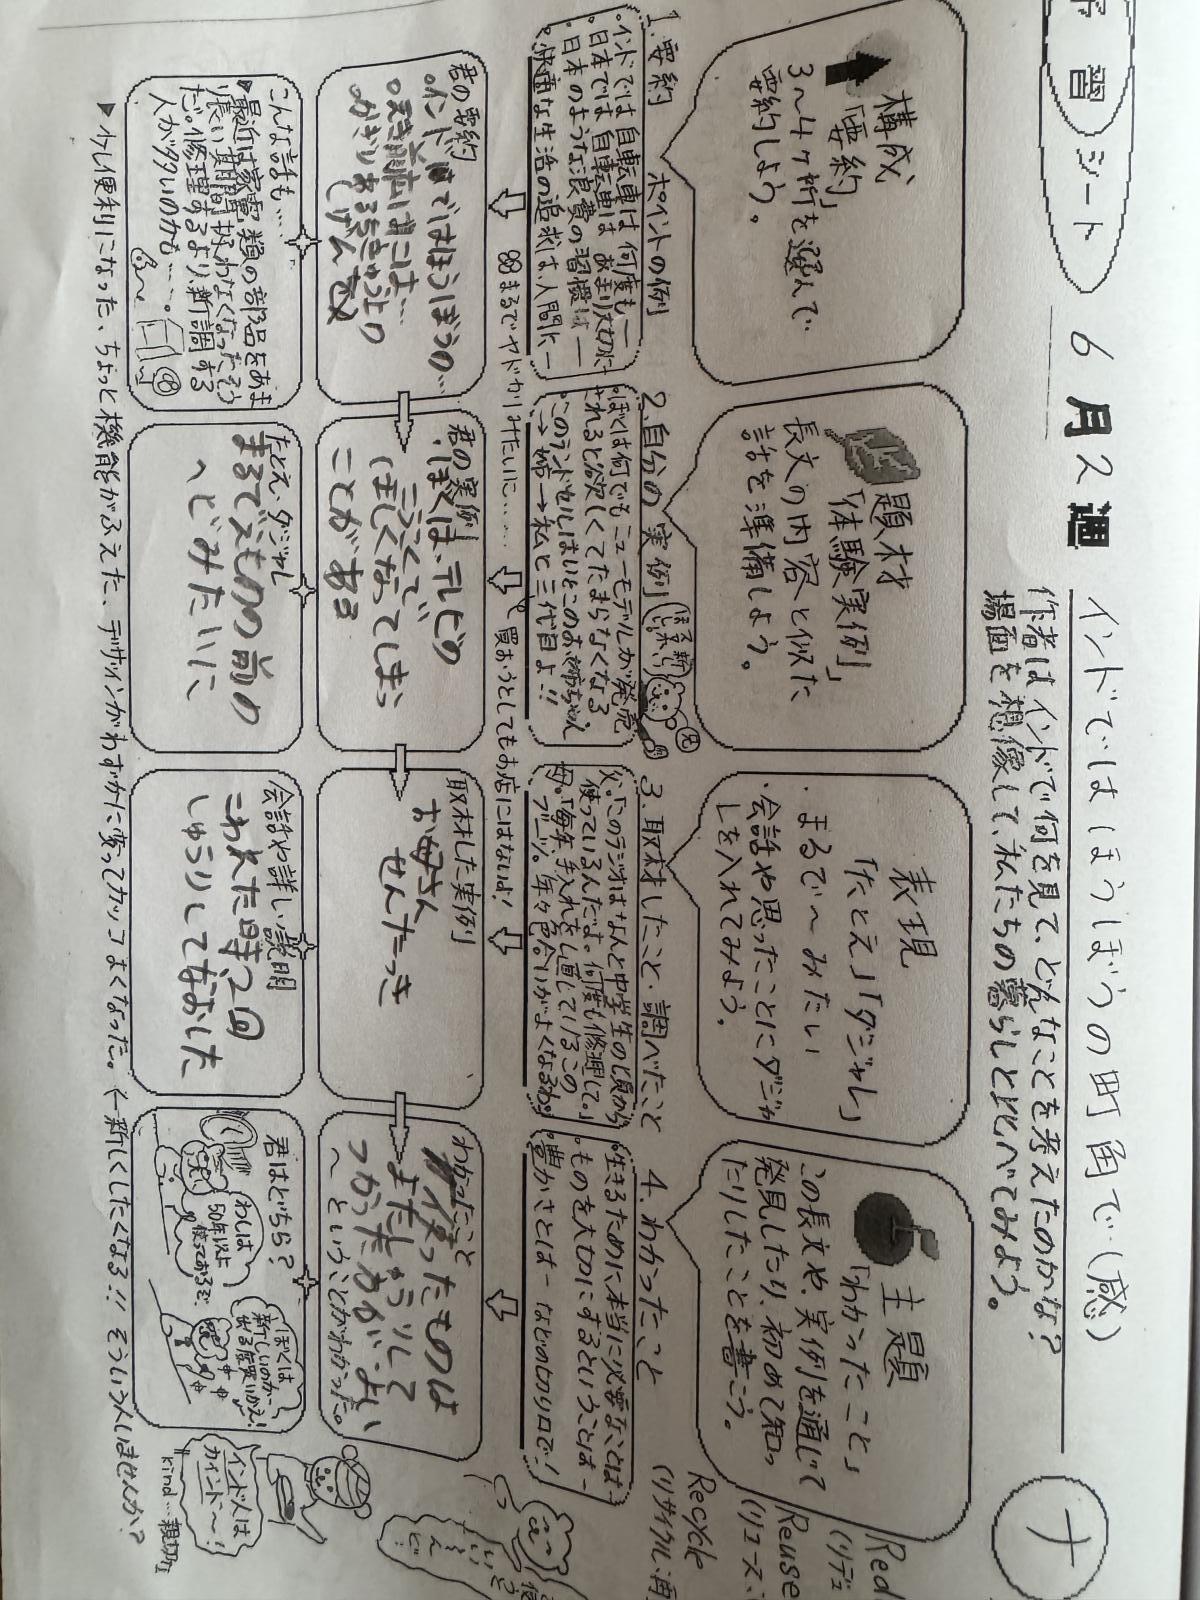 予習シート
6月2週
インドではほうぼうの町角で(感)
ナ
作者はインドで何を見て、どんなことを考えたのかな?
場面を想像して、私たちの暮らしと比べてみよう。
構成
「要約」
3〜4ヶ所を選んで
要約しよう。
題材
「体験実例」
長文の内容と似た
話を準備しよう。
表現
「たとえ」「ダジャレ」
・まるで〜みたい
・会話や思ったことにダジャ
レを入れてみよう。
主題
「わかったこと」
この長文や、実例を通じて
発見したり、初めて知っ
たりしたことを書こう。
Reuse
Recycle
1.要約 ポイントの例
・インドでは自転車は何度も—
・日本では自転車はあまり大切に
・日本のような浪費の習慣は—
・快適な生活の追求は、人間に—
2.自分の実例
・ぼくは何でもニューモデルが発売
されると欲しくてたまらなくなる
・このランドセルはいとこのお姉ちゃん
→姉→私と三代目よ!!
3.取材したこと・調べたこと
父「このラジオはなんと中学生の頃から
使っているんだよ。何度も修理して。」
母「毎年、手入れをし直しているこの
ブーツ。年々色合いがよくなるわ。」
4.わかったこと
・生きるために本当に必要なことは—
・ものを大切にするということは—
・豊かさとは— などの切り口で!
まるでヤドカリみたいに……
買おうとしてもお店にはないよ!
君の要約
インドではほうぼうの…
君の実例
ぼくは、テレビの
こうこくで
ほしくなってしまっ
ことがある
取材した実例
お母さん
せんたっき
わかったこと
使ったものは
またしゅうりして
つかったほうが、よい
〜ということがわかった。
こんな話も…
▶最近は家電類の部品をあま
り長い期間扱わなくなったそう
だ。修理するより、新調する
人が多いのかも……。
たとえ・ダジャレ
まるでえものの前の
ヘビみたいに
会話や詳しい説明
こわれた時、2回
しゅうりしてなおした
君はどちら?
わしは
50年以上
使っておるぞ。
ぼくは
新しいのが
出る度買いかえ!
インド人は
カインド〜!
kind…親切な
▶今より便利になった、ちょっと機能がふえた、デザインがわずかに変ってカッコよくなった。(←新しくしたくなる!!そういう人いませんか?